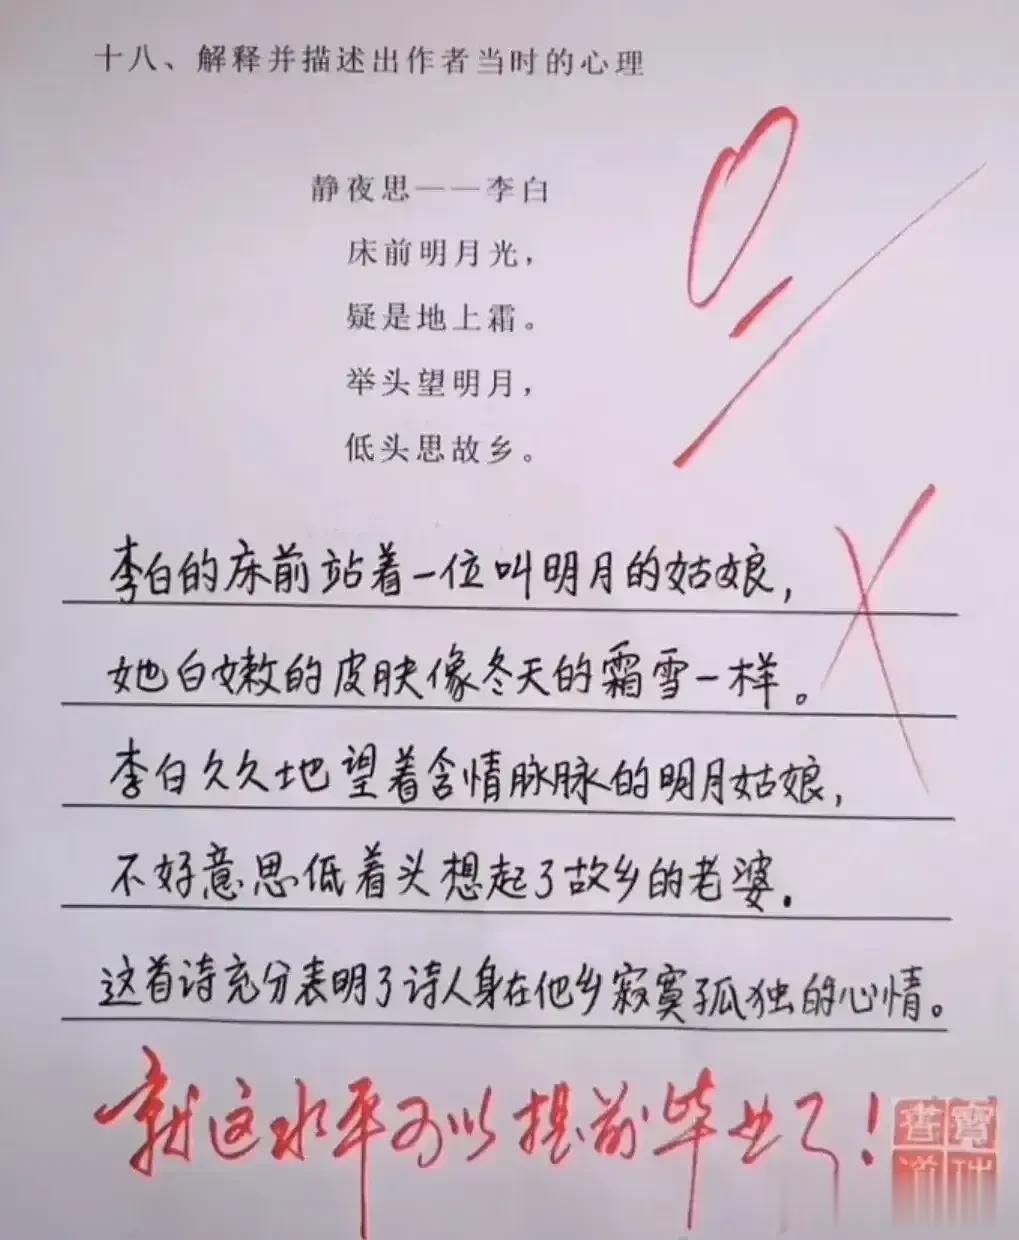 十八、解释并描述出作者当时的心理
静夜思——李白
床前明月光，
疑是地上霜。
举头望明月，
低头思故乡。
0
李白的床前站着一位叫明月的姑娘，
她白嫩的皮肤像冬天的霜雪一样。
李白久久地望着含情脉脉的明月姑娘，
不好意思低着头想起了故乡的老婆.
这首诗充分表明了诗人身在他乡寂寞孤独的心情。
就这水平可以提前毕业了！